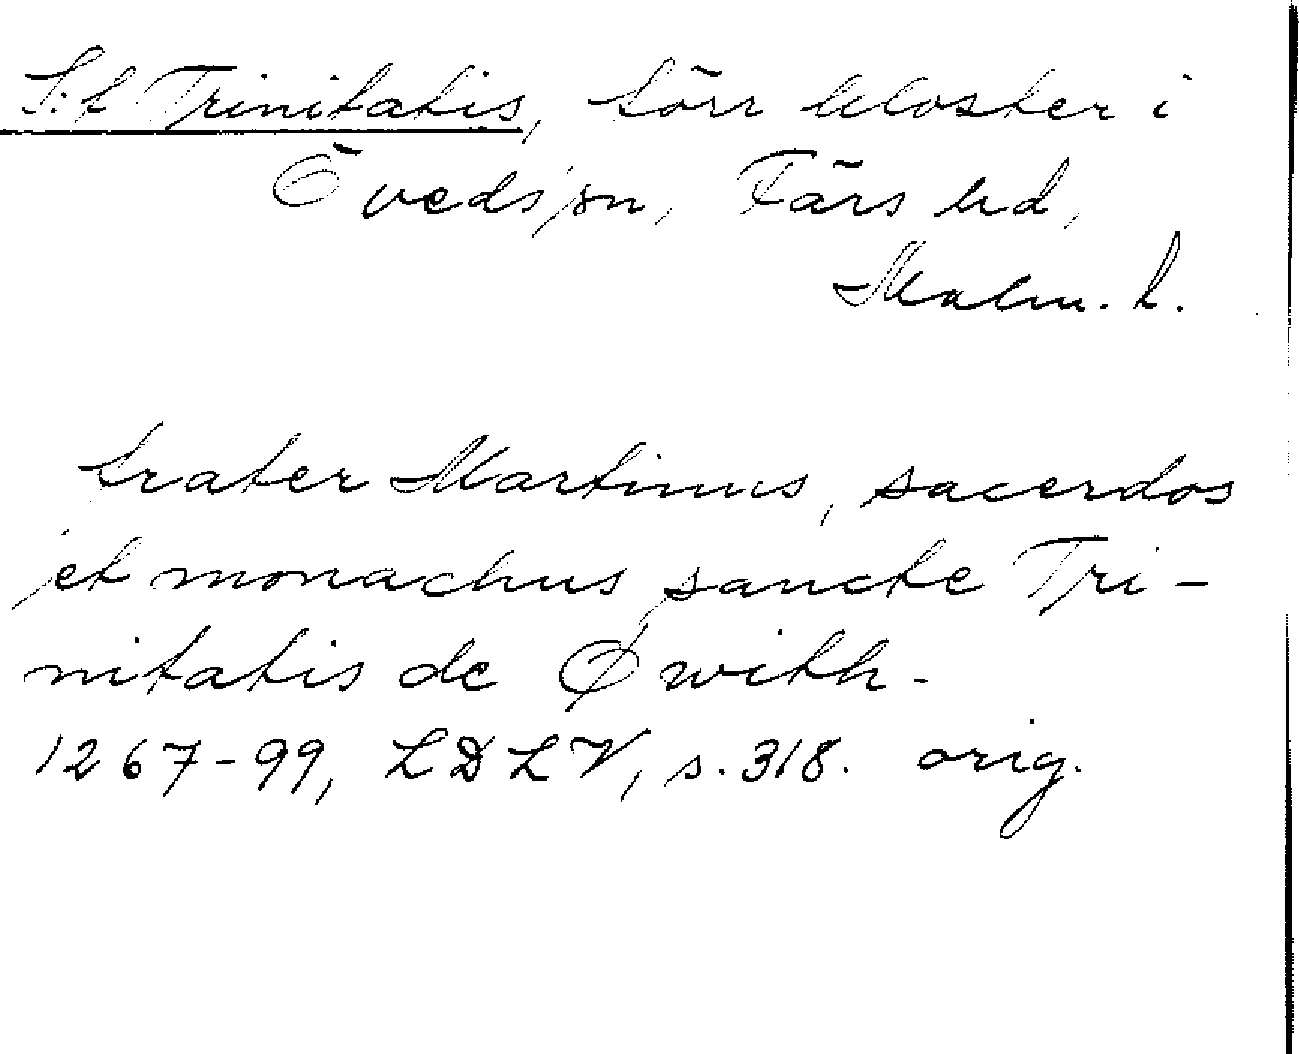 S:t Trinitatis, förr kloster i
Övedsjsn, Färs hd,
Malm. l.
frater Martinus, sacerdos
et monachus sancte Tri-
nitatis de Øwith.
1267-99, LDLV, s. 318. orig.